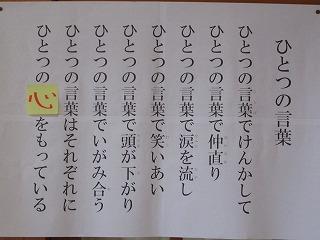 ひとつの言葉
ひとつの言葉でけんかして
ひとつの言葉で仲直り
ひとつの言葉で涙を流し
ひとつの言葉で笑いあい
ひとつの言葉で頭が下がり
ひとつの言葉でいがみ合う
ひとつの言葉はそれぞれに
ひとつの心をもっている